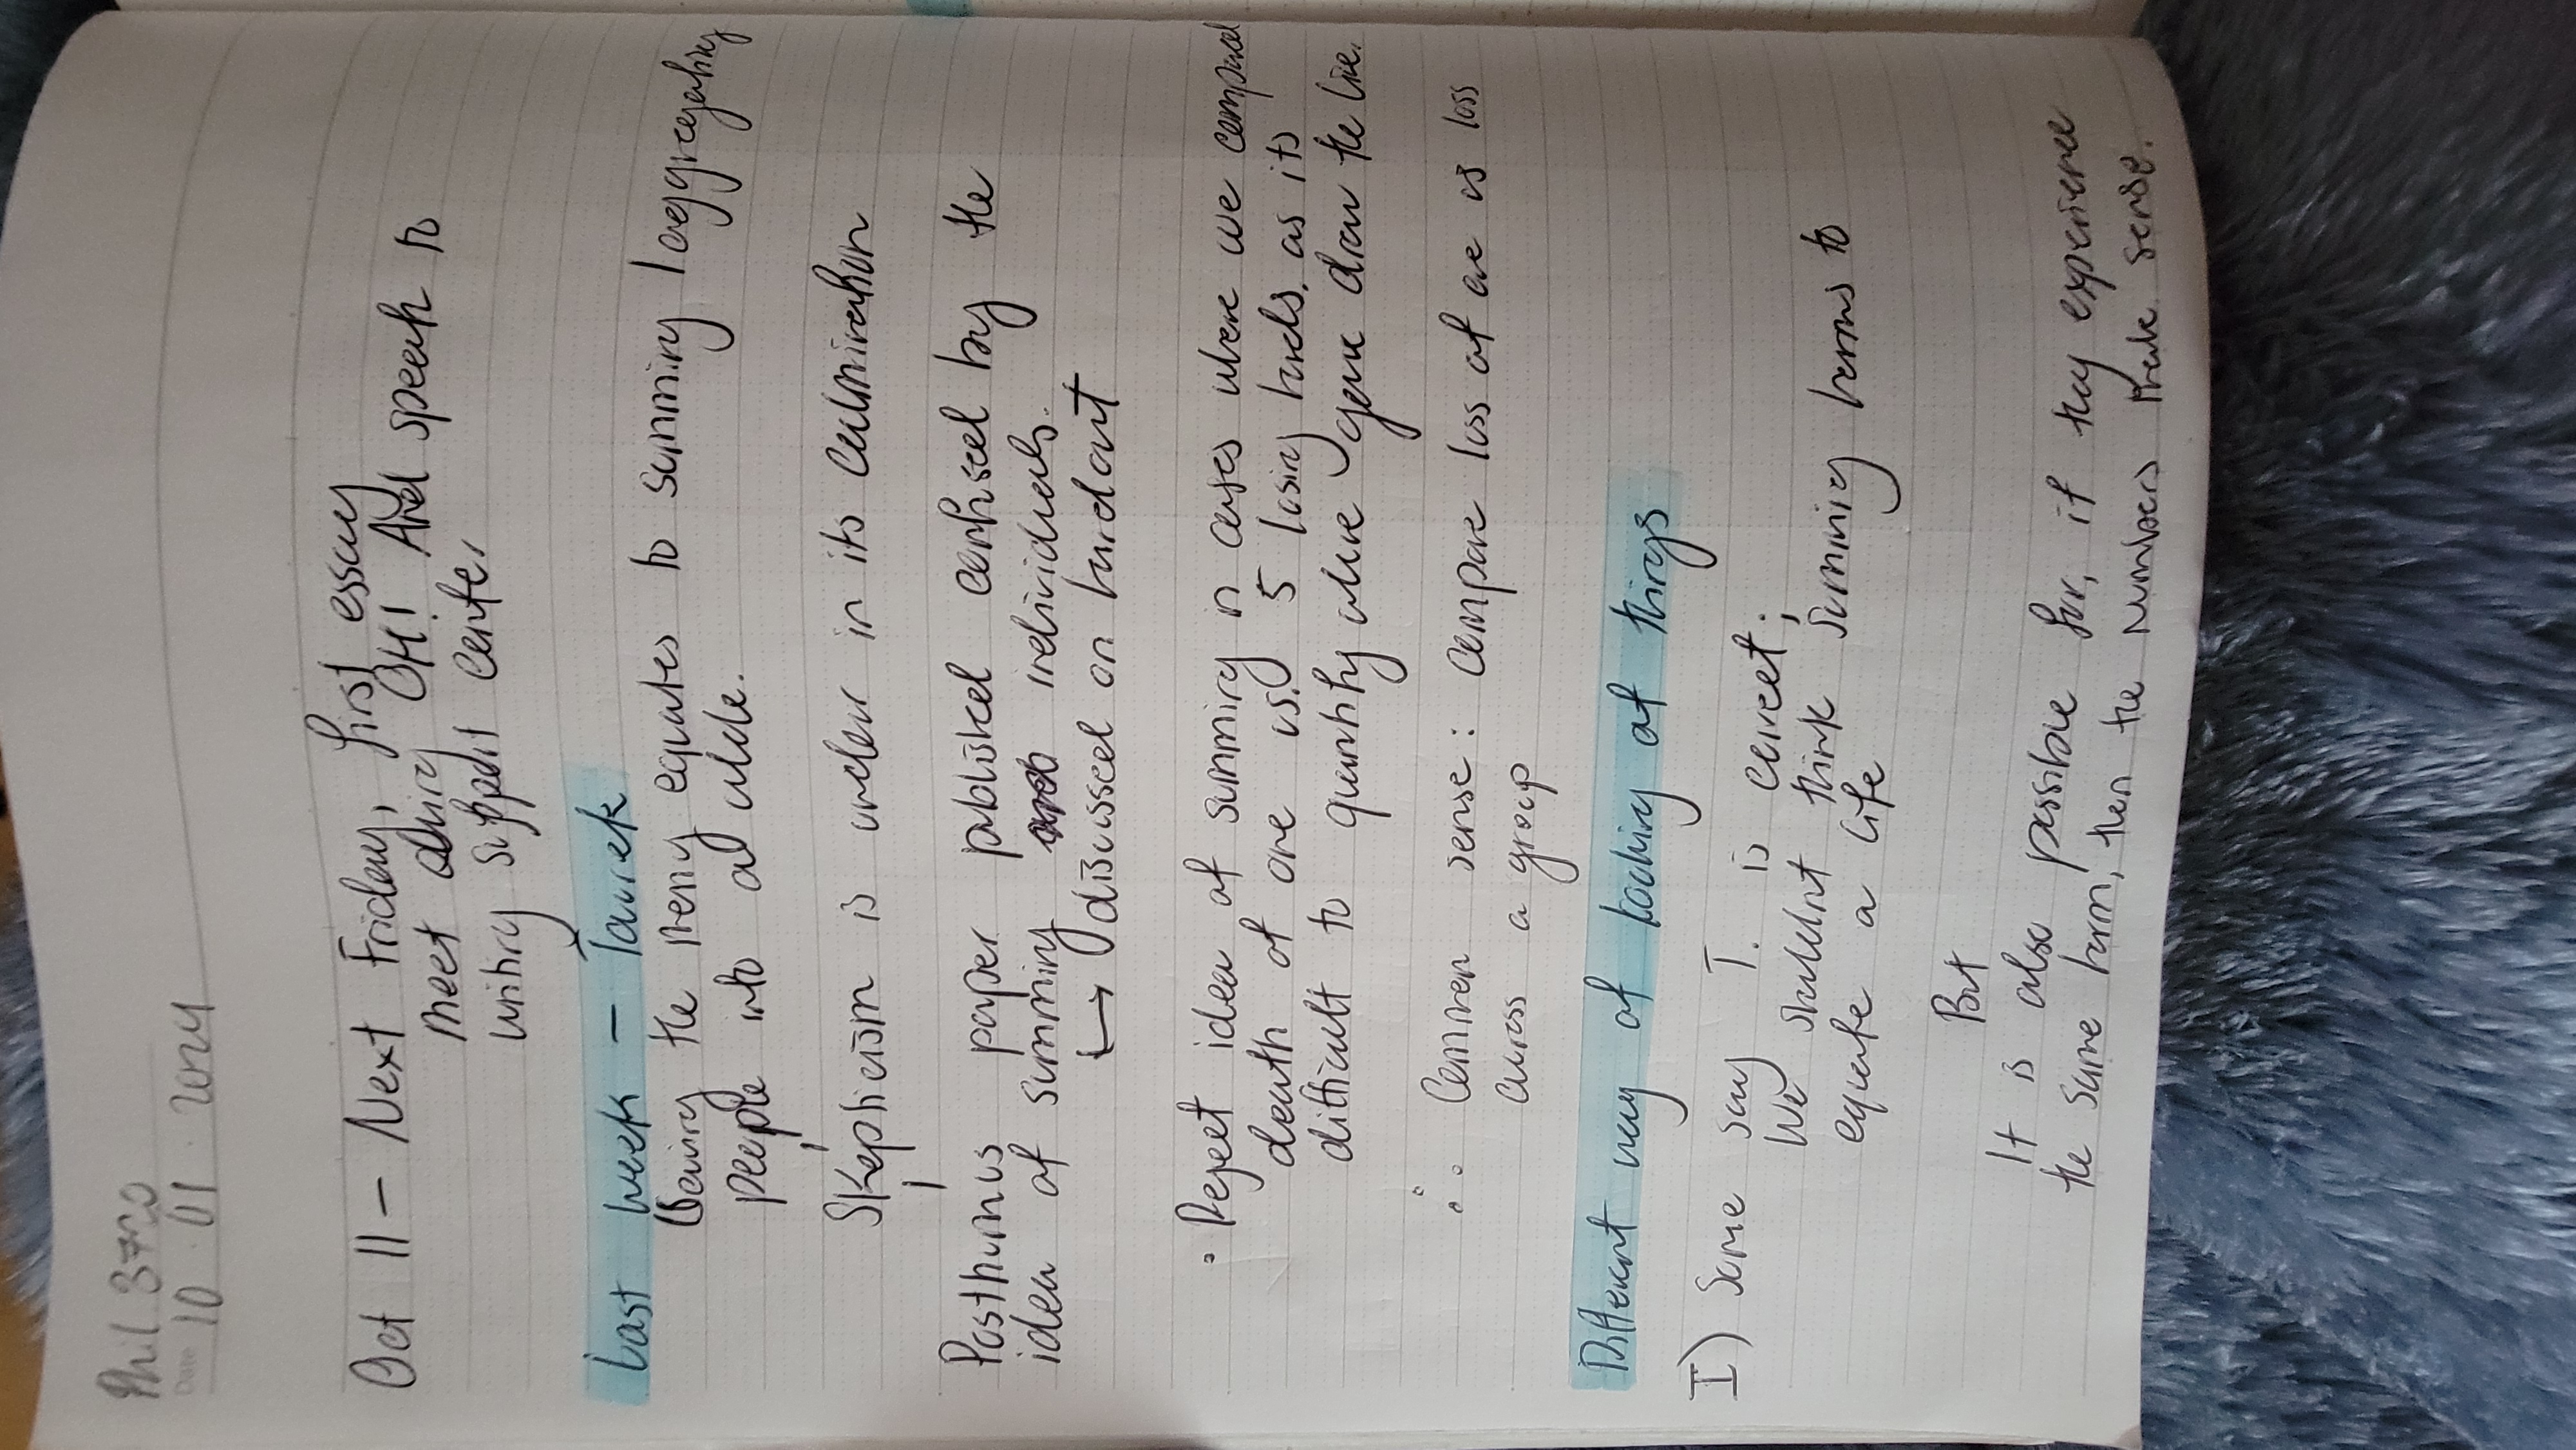 Phil 3720
Date 10.01.2024
Oct 11 - Next Friday, first essay
meet during OH! And speak to
writing support cente,
Last week - Taurek
Saving the many equates to summing/aggregating
people into a whole.
Skepticism is under in its culmination
Posthumus paper published confused by the
idea of summing individuals.
↳ discussed on handout
• Reject idea of summing in cases where we compared
death of one vs. 5 losing hands, as its
difficult to quantify where gone draw the line.
∴ Common sense: compare loss of one vs loss
across a group
Different way of looking at things
I) Some say T. is correct;
We shouldn't think summing harms to
equate a life
But
It is also possible for, if they experience
the same harm, then the numbers make sense.